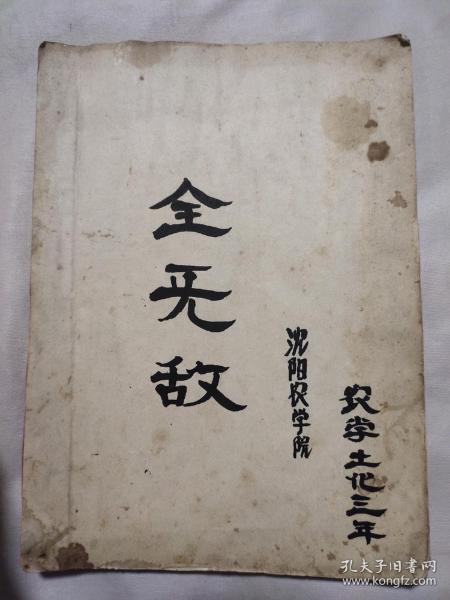 全无敌
沈阳农学院
农学土化三年
孔夫子旧书网
www.kongfz.com